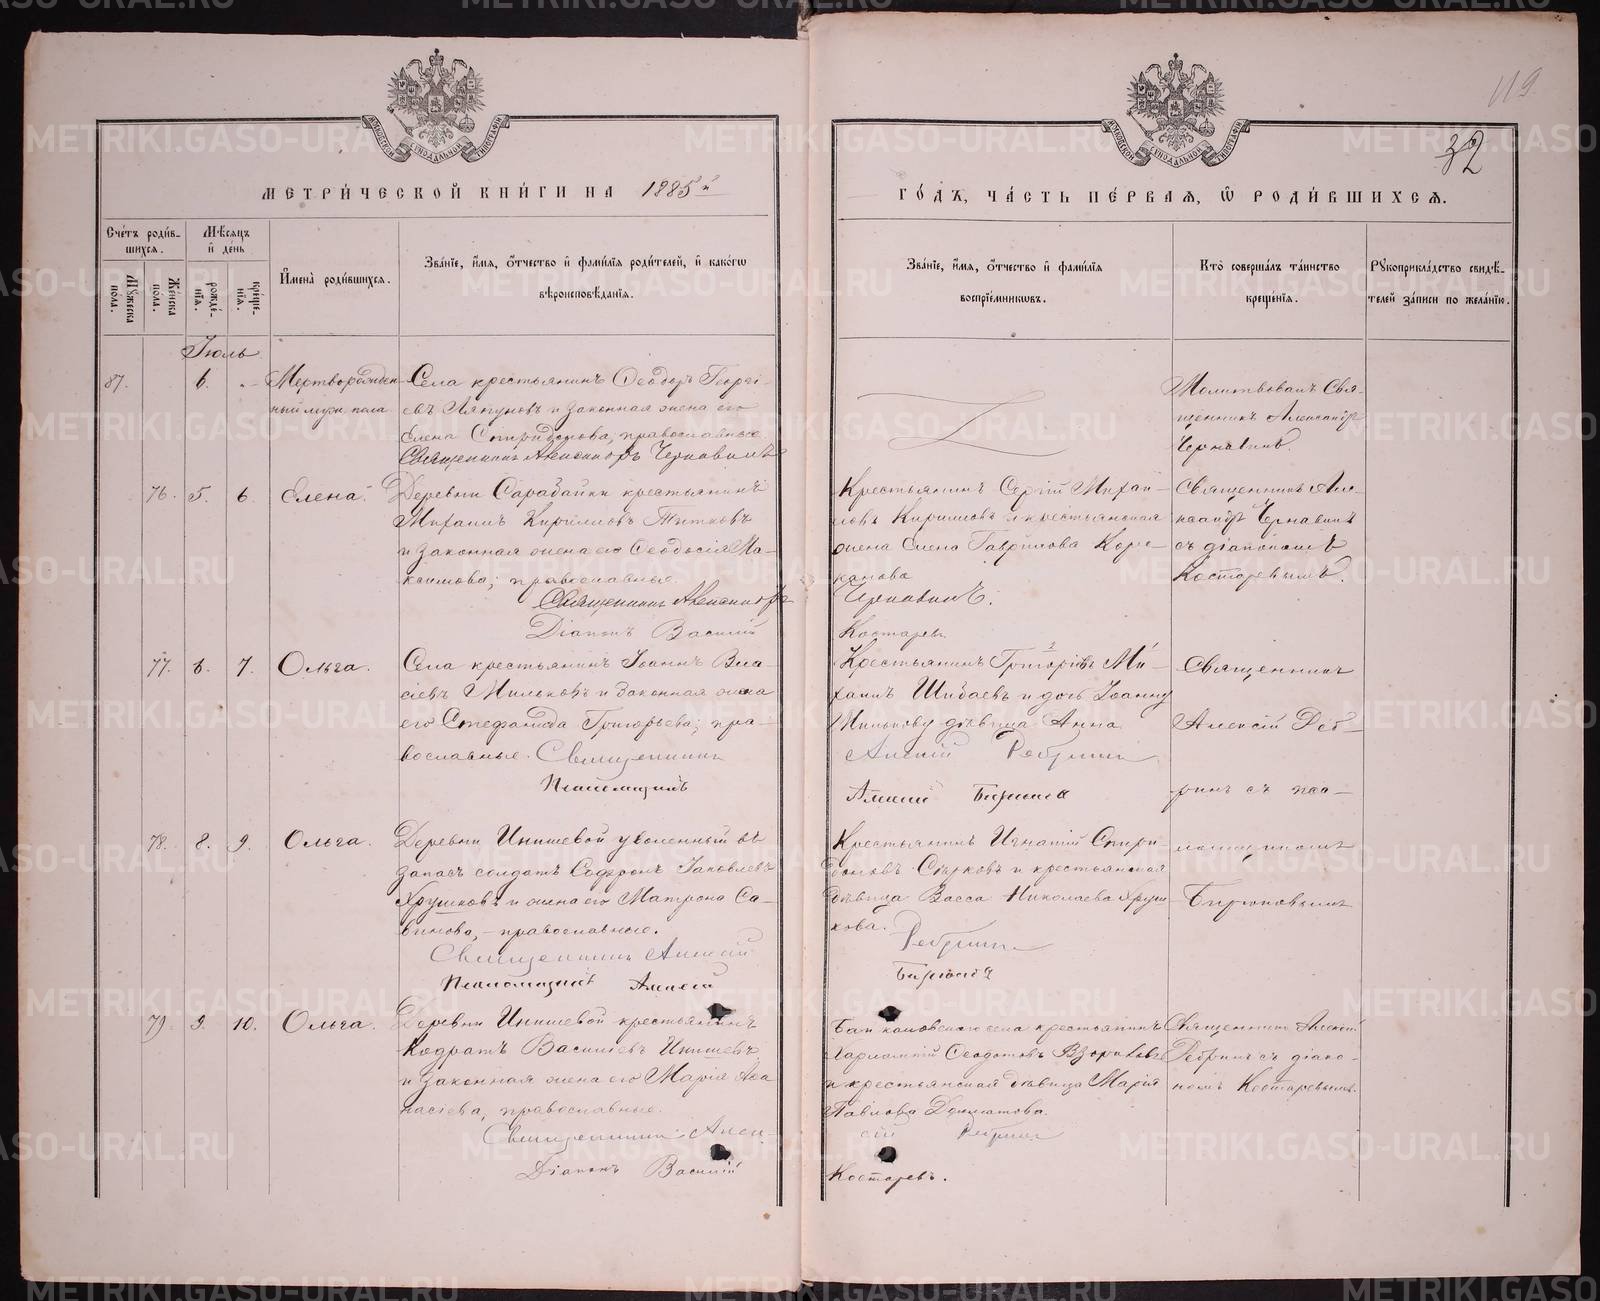 119
32
МОСКОВСКОЙ СѴНОДАЛЬНОЙ ТИПОГРАФІИ
МОСКОВСКОЙ СѴНОДАЛЬНОЙ ТИПОГРАФІИ
МЕТРИ́ЧЕСКОЙ КНИ́ГИ НА 1885й
ГО́ДЪ, ЧА́СТЬ ПЕ́РВАЯ, Ѿ РОДИ́ВШИХСЯ.
Сче́тъ роди́в-
шихся.
Му́жеска пола.
Же́нска пола.
Мѣ́сяцъ и де́нь
рожде́-
нїя.
креще́-
нїя.
Имена̀ роди́вшихся.
Зва́нїе, и́мя, о́тчество и фами́лїя роди́телей, и како́гѡ
вѣроисповѣ́данїя.
Зва́нїе, и́мя, о́тчество и фами́лїя
воспрїе́мниковъ.
Кто̀ соверша́лъ та́инство
креще́нїя.
Рꙋкоприкла́дство свидѣ́-
телей за́писи по жела́нїю.
Іюль
87. 6. - Мертворожден-
ный муж. пола
Села крестьянинъ Ѳеодоръ Георгі-
евъ Лягуновъ и законная жена его
Елена Спиридонова, православные.
Священникъ Александръ Чернавинъ
Молитвовалъ Свя-
щенникъ Александръ
Чернавинъ.
76. 5. 6. Елена.
Деревни Сарабайки крестьянинъ
Михаилъ Кирилловъ Титковъ
и законная жена его Ѳеодосія Ма-
ксимова; православные.
Священникъ Александръ
Діаконъ Василій
Крестьянинъ Сергій Михаи-
ловъ Кирилловъ и крестьянская
жена Елена Гаврилова
Чернавинъ.
Костаревъ
Священникъ Алек-
сандръ Чернавинъ
съ діакономъ
Костаревымъ.
77. 6. 7. Ольга.
Села крестьянинъ Іоаннъ Вла-
сіевъ Мильковъ и законная жена
его Стефанида Григорьева; пра-
вославные. Священникъ
Псаломщикъ
Крестьянинъ Григорій Ми-
хаилъ Шибаевъ и дочь Іоанну
Милькову дѣвица Анна
Алексій Ребринъ
Алексій Бирюковъ
Священникъ
Алексій Реб-
ринъ съ пса-
ломщикомъ
Бирюковымъ
78. 8. 9. Ольга.
Деревни Инишевой уволенный въ
запасъ солдатъ Софронъ Іаковлевъ
Хрушковъ и жена его Матрона Са-
винова, - православные.
Священникъ Алексій
Псаломщикъ Алексій
Крестьянинъ Игнатій Спири-
доновъ Сѣрковъ и крестьянская
дѣвица Васса Николаева Хруш
кова.
Ребринъ
Бирюковъ
79. 9. 10. Ольга.
Деревни Инишевой крестьянинъ
Кодратъ Василіевъ Инишевъ
и законная жена его Марія Аѳа
насіева, православные.
Священникъ Алек-
Діаконъ Василій
села крестьянинъ
Харлампій Ѳеодотовъ Взоровъ
и крестьянская дѣвица Марія
Павлова Долматова.
сій Ребринъ
Костаревъ.
Священникъ Алексій
Ребринъ съ діако-
номъ Костаревымъ.
METRIKI.GASO-URAL.RU